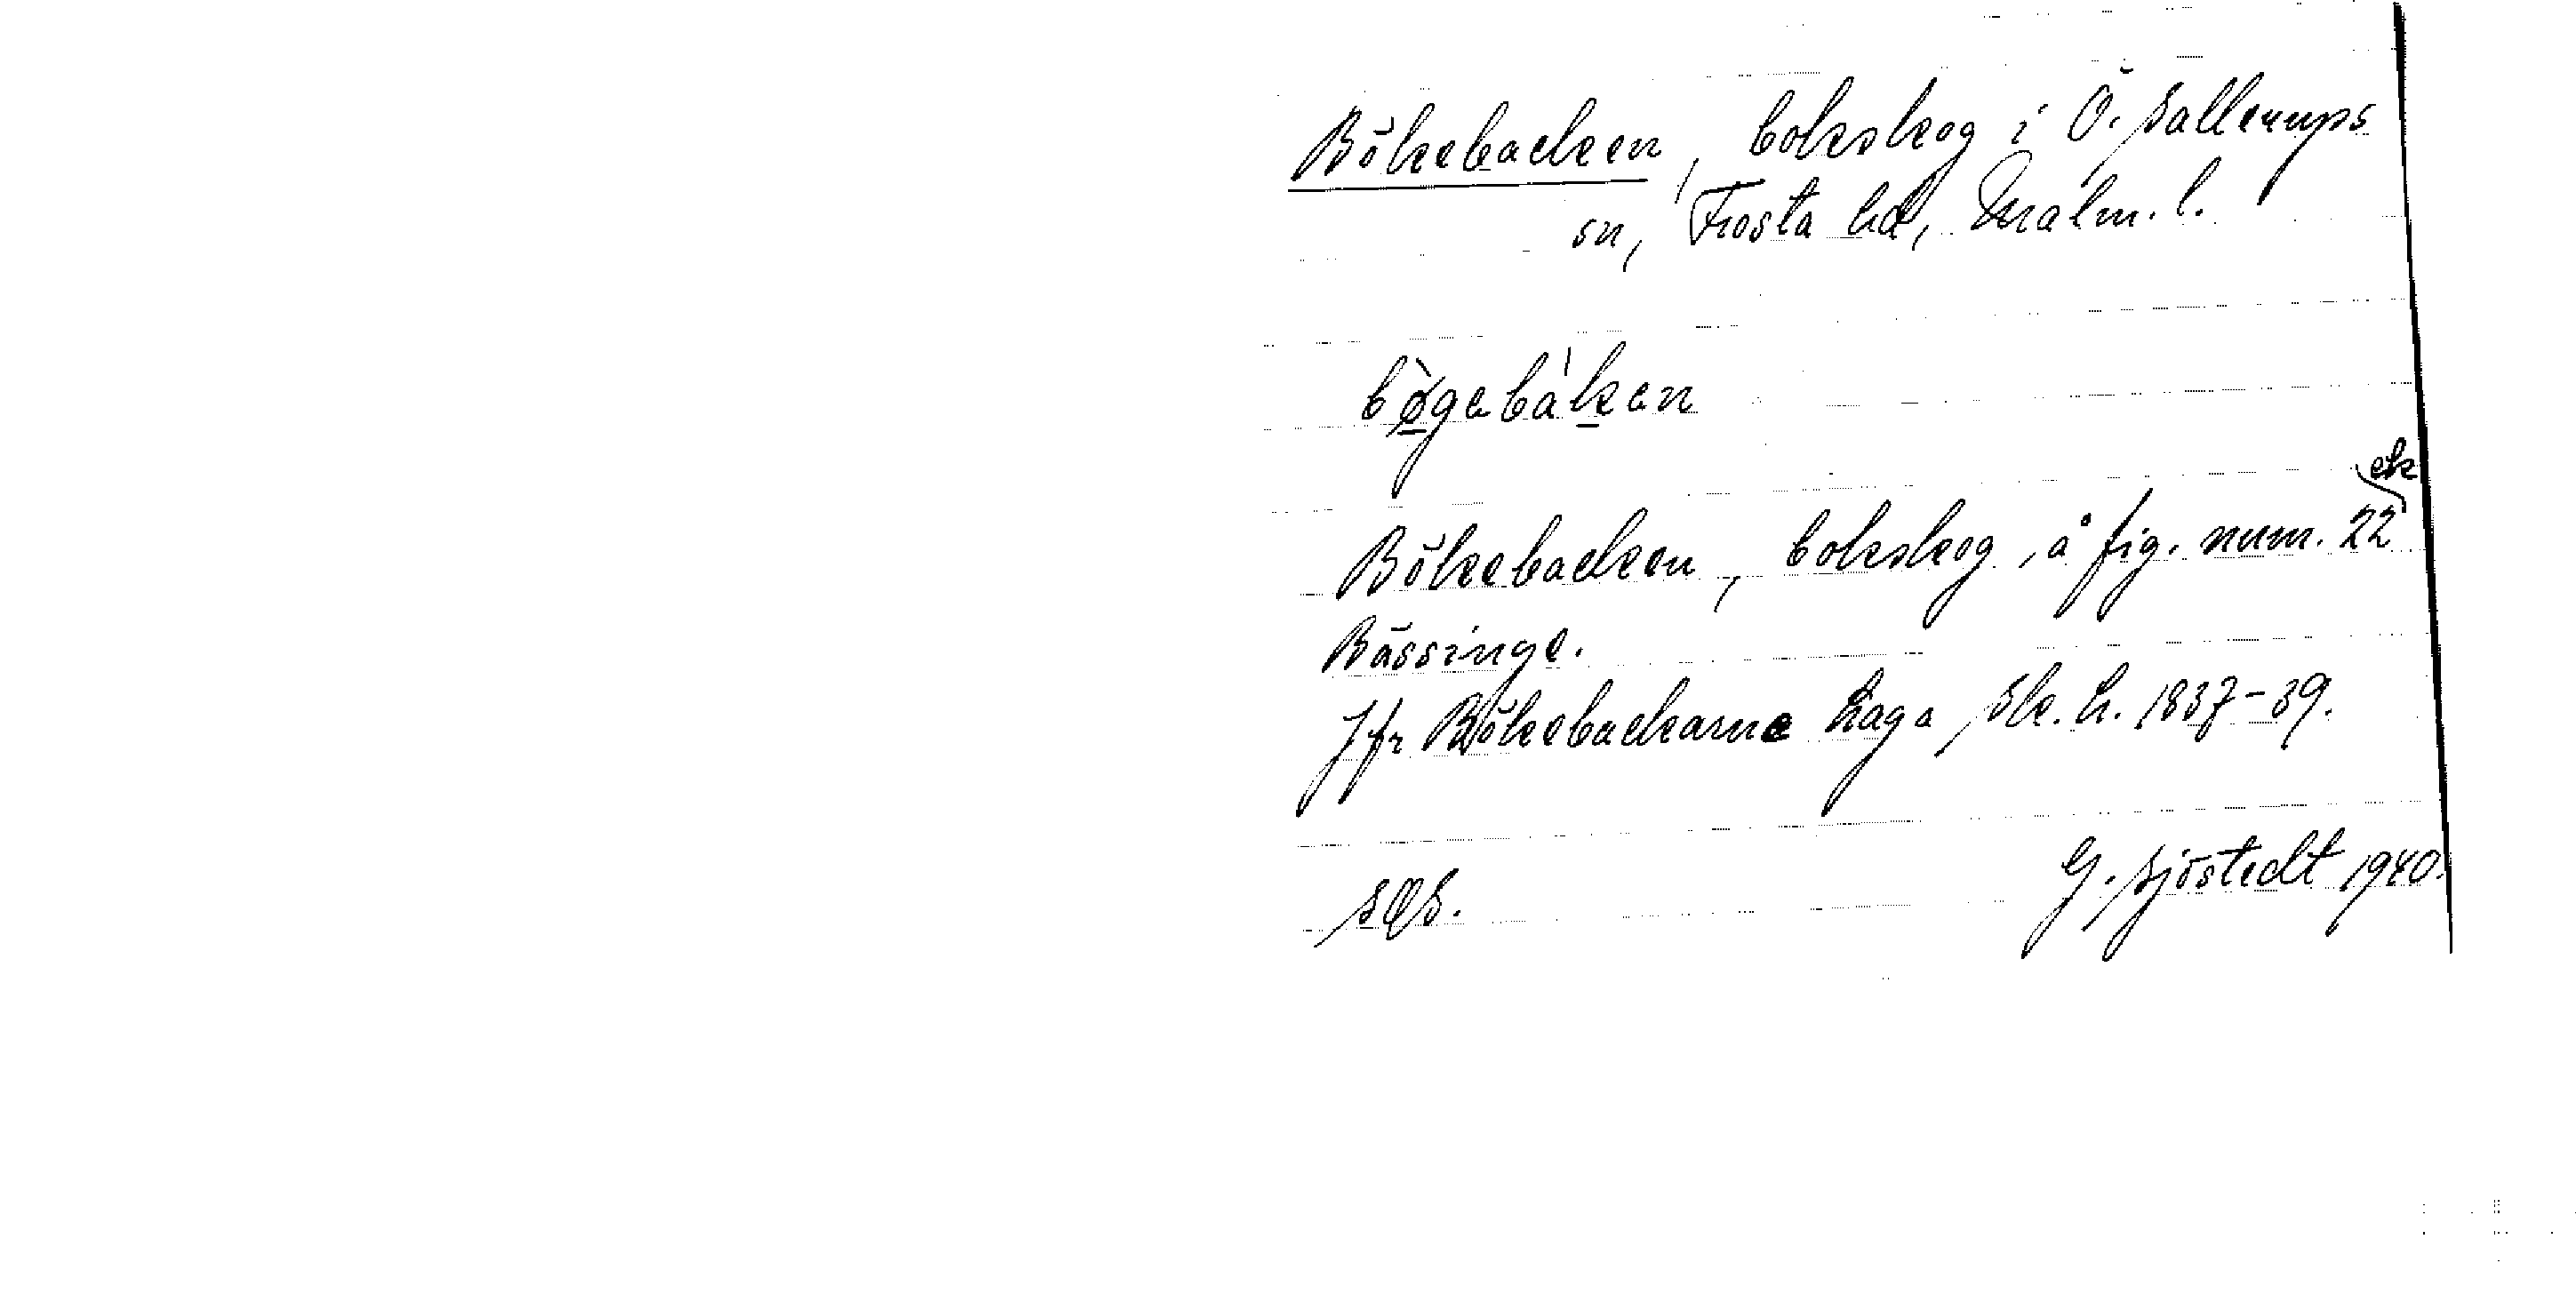 Bökebacken, bokskog i Ö. Sallerups
sn, Frosta hd, Malm. l.
bø̀gebàken
ek
Bökebacken, bokskog, å fig. num. 22
Bässinge.
Jfr Bökebackarne Laga sk. h. 1837-39.
SOS. G. Sjöstedt 1940.